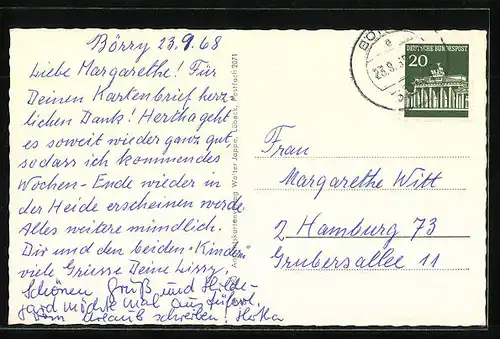 Börry 23.9.68
Liebe Margarethe! Für
Deinen Kartenbrief herz
lichen Dank! Hertha geht
es soweit wieder ganz gut,
sodass ich kommendes
Wochen-Ende wieder in
der Heide erscheinen werde.
Alles weitere mündlich.
Dir und den beiden "Kindern"
viele Grüsse Deine Lissy.
Schönen Gruß und Hilde-
gard möchte mal ausführl.
vom Urlaub schreiben Hertha
Walter Jappe, Lübeck, Postfach 2071
DEUTSCHE BUNDESPOST
20
Frau
Margarethe Witt
2 Hamburg 73
Grubersallee 11